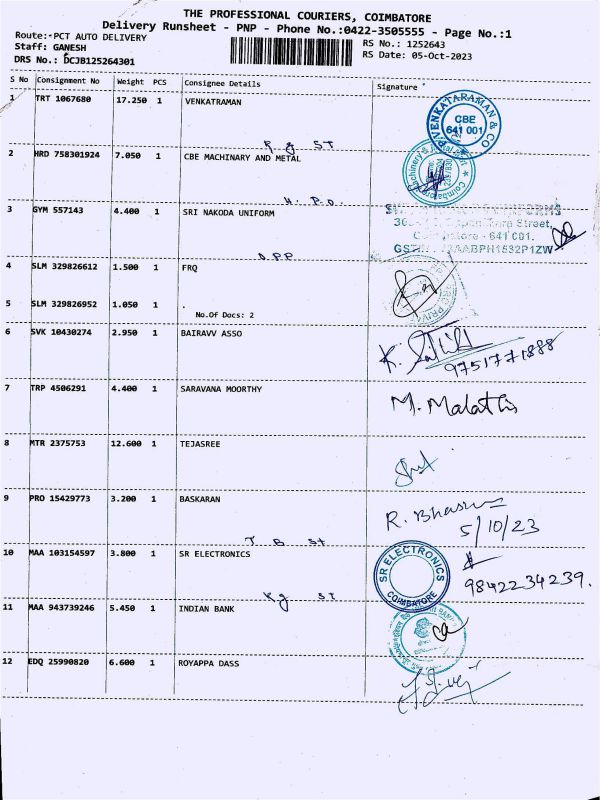 THE PROFESSIONAL COURIERS, COIMBATORE
Delivery Runsheet - PNP - Phone No.:0422-3505555 - Page No.:1
Route: PCT AUTO DELIVERY
RS No.: 1252643
Staff: GANESH
RS Date: 05-Oct-2023
DRS No.: DCJB125264301
S No Consignment No Weight PCS Consignee Details Signature
1 TRT 1067680 17.250 1 VENKATRAMAN
P.VENKATARAMAN & CO CBE 641 001
R g ST
2 HRD 758301924 7.050 1 CBE MACHINARY AND METAL
H. P.O.
3 GYM 557143 4.400 1 SRI NAKODA UNIFORM
Street,
Coimbatore - 641 001.
O.P.P
4 SLM 329826612 1.500 1 FRQ
5 SLM 329826952 1.050 1 .
No.Of Docs: 2
6 SVK 10430274 2.950 1 BAIRAVV ASSO
9751771888
7 TRP 4506291 4.400 1 SARAVANA MOORTHY
M. Malathi
8 MTR 2375753 12.600 1 TEJASREE
9 PRO 15429773 3.200 1 BASKARAN
5/10/23
T B St
10 MAA 103154597 3.800 1 SR ELECTRONICS
SR ELECTRONICS COIMBATORE
9842234239.
11 MAA 943739246 5.450 1 INDIAN BANK
12 EDQ 25990820 6.600 1 ROYAPPA DASS